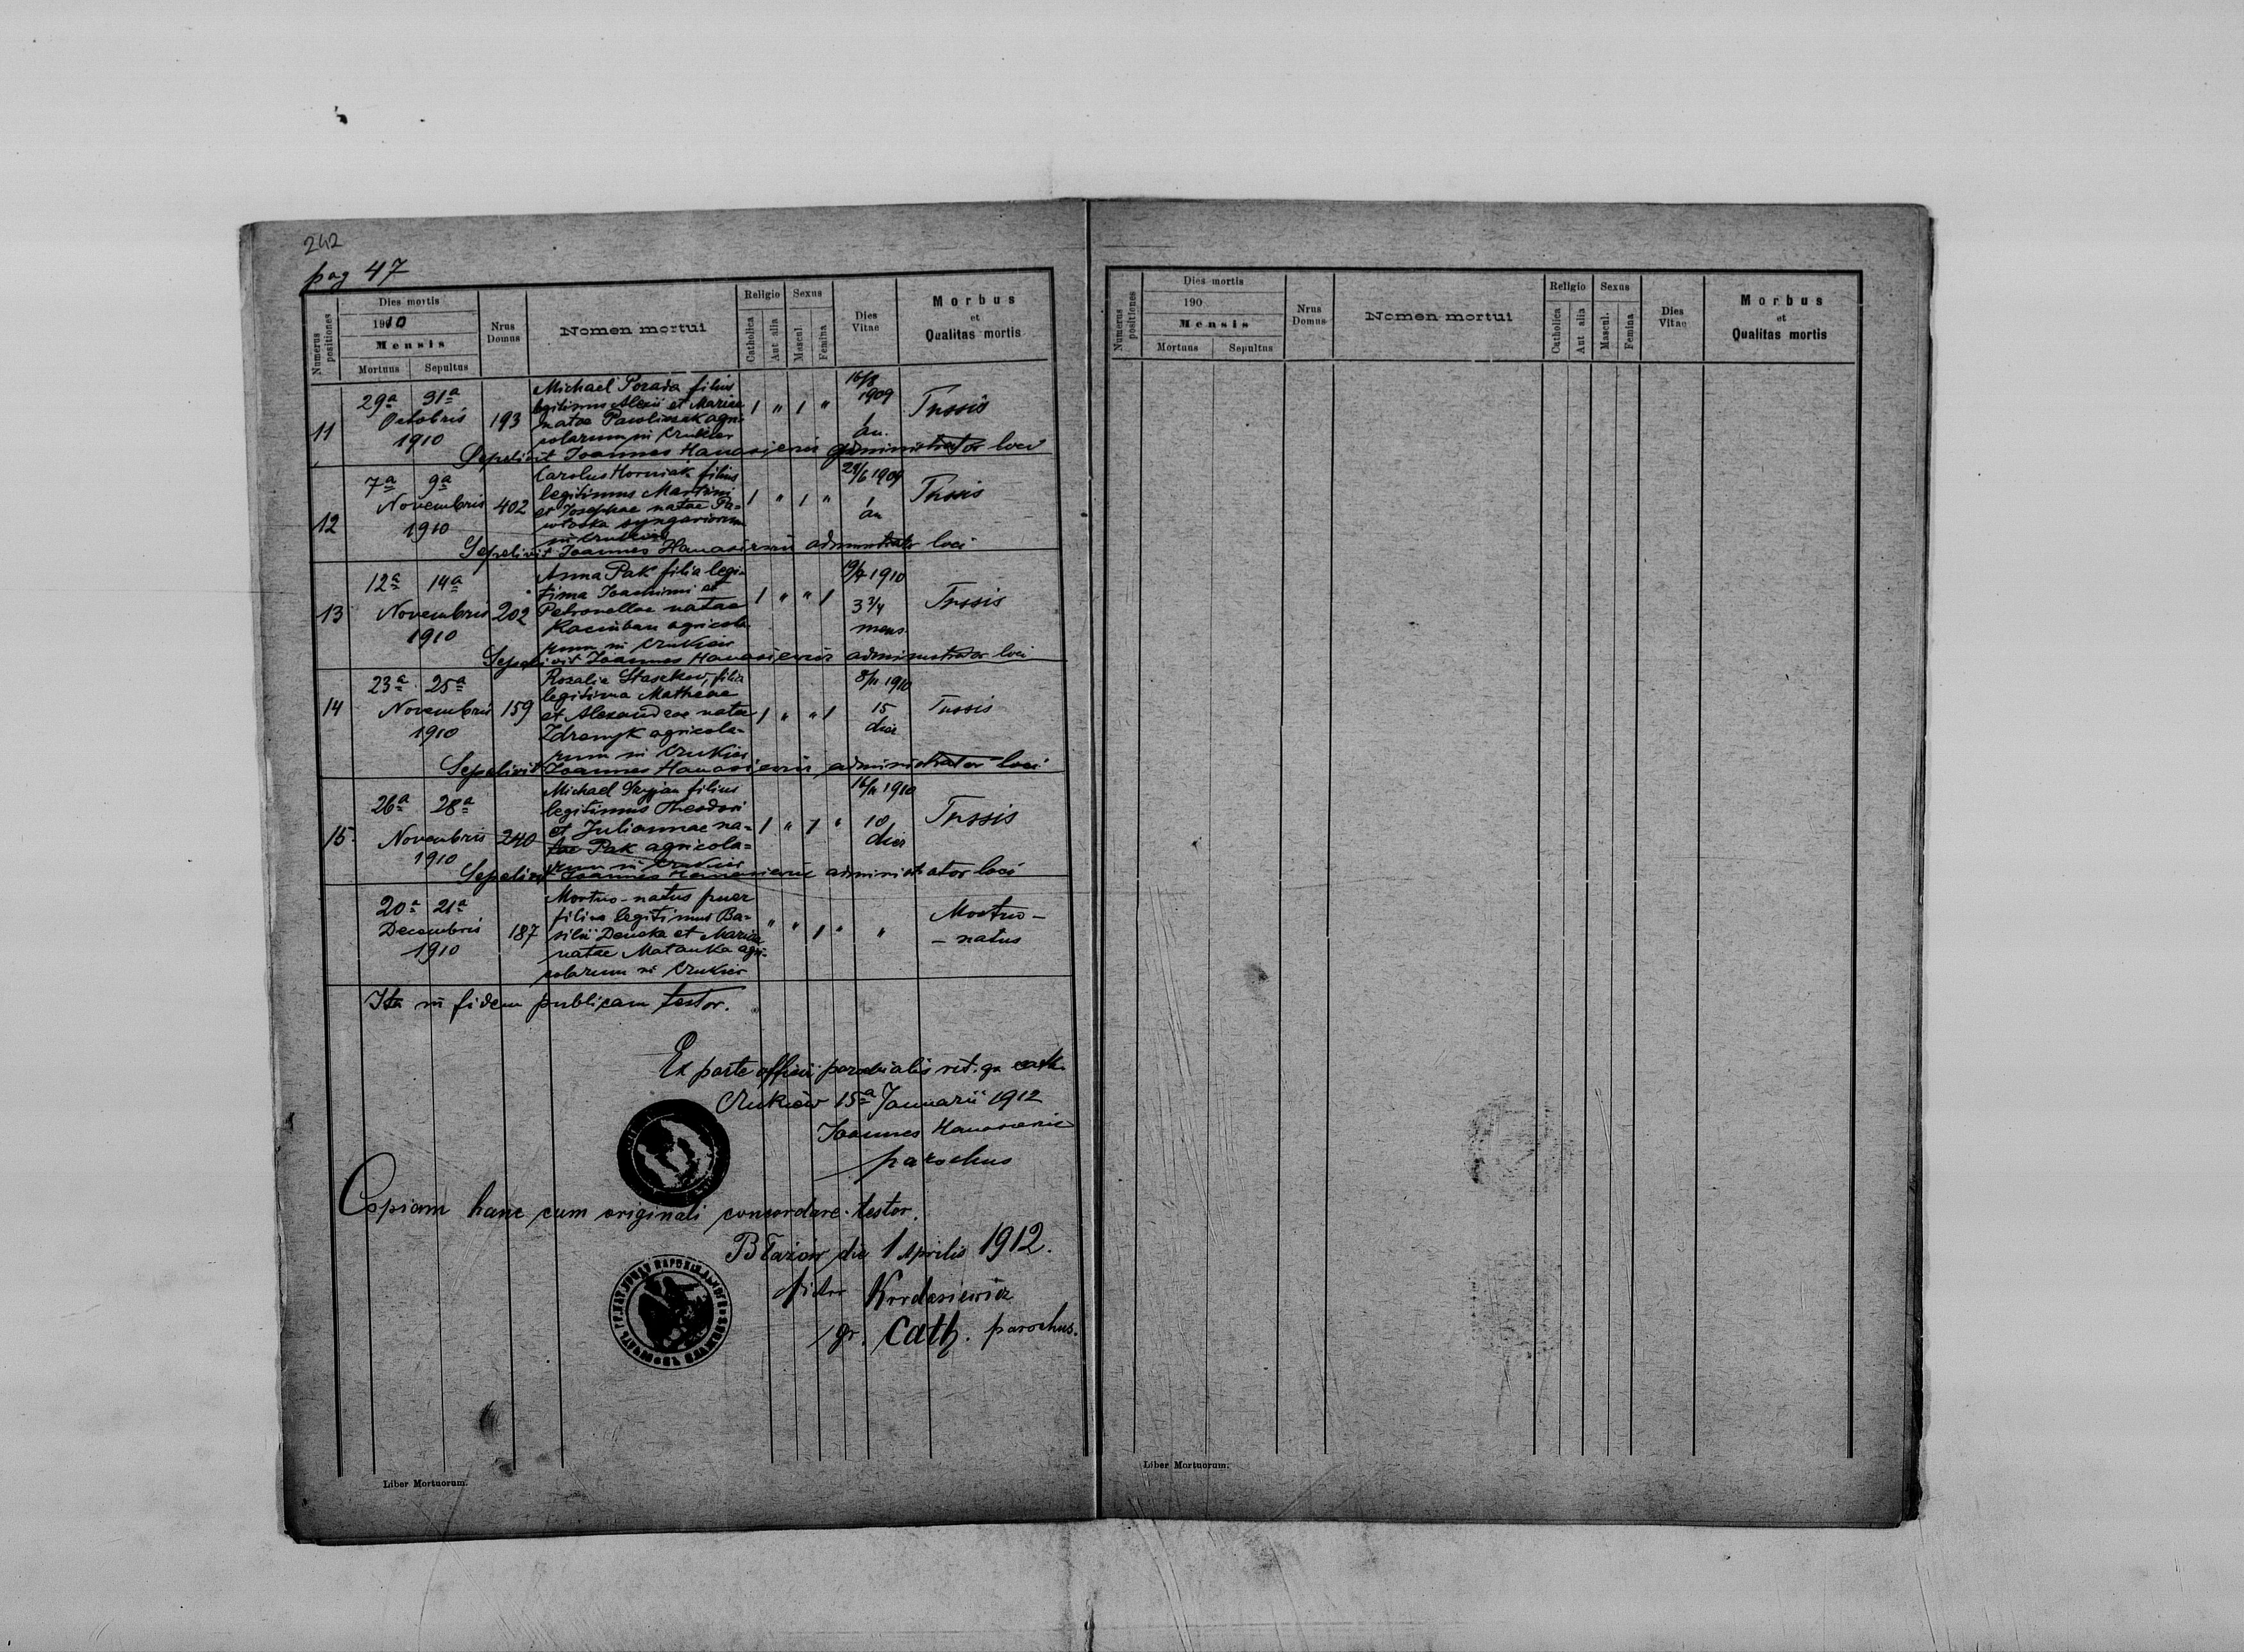 242
pag 47
Numerus positiones
Dies mortis
1910
Mensis
Mortuus Sepultus
Nrus Domus
Nomen mortui
Religio
Catholica
Aut alia
Sexus
Mascul.
Femina
Dies Vitae
Morbus
et
Qualitas mortis
11
29a 31a
Octobris
1910
193
Michael Porada filius
legitimus Alexii et Mariae
natae Pawliszak agri-
colarum in Czukiew
1 " 1 "
16/8
1909
1
an.
Tussis
Sepelivit Joannes Hanasiewicz administrator loci
12
7a 9a
Novembris
1910
402
Carolus Horniak filius
legitimus Martini
et Josephae natae Pa-
in Czukiew
1 " 1 "
1909
1
an
Tussis
Sepelivit Joannes Hanasiewicz administrator loci
13
12a 14a
Novembris
1910
202
Anna Pak filia legi-
tima Joachimi et
Petronellae natae
agricola-
rum in Czukiew
1 " " 1
1910
3 3/4
mens.
Tussis
Sepelivit Joannes Hanasiewicz administrator loci
14
23a 25a
Novembris
1910
159
Rozalia Staschew, filia
legitima Matheae
et Alexandrae natae
Zdramyk agricola-
rum in Czukiew
1 " " 1
8/11 1910
15
dies
Tussis
Sepelivit Joannes Hanasiewicz administrator loci
15
26a 28a
Novembris
1910
240
Michael filius
legitimus Theodori
et Juliannae na-
tae Pak agricola-
rum in Czukiew
1 " 1 "
16/11 1910
10
dies
Tussis
Sepelivit Joannes Hanasiewicz administrator loci
20a 21a
Decembris
1910
187
Mortuo-natus puer
filius legitimus Ba-
silii Deneka et Mariae
natae Matanka agri-
colarum in Czukiew
" " 1 "
"
Mortuo-
-natus
Ita in fidem publicam testor.
Ex parte officii parochialis rit. gr. cath.
Czukiew 15a Januarii 1912
Joannes Hanasiewicz
parochus
Copiam hanc cum originali concordare testor.
Błażów die 1 Aprilis 1912.
Kordasiewicz
gr. cath. parochus.
Liber Mortuorum.
Numerus positiones
Dies mortis
190
Mensis
Mortuus Sepultus
Nrus Domus
Nomen mortui
Religio
Catholica
Aut alia
Sexus
Mascul.
Femina
Dies Vitae
Morbus
et
Qualitas mortis
Liber Mortuorum.